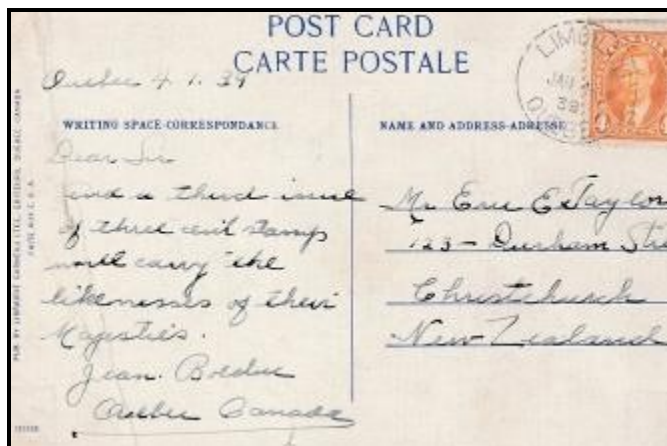 POST CARD
CARTE POSTALE
Quebec 4.1.39
LIMOI
JAN
39
WRITING SPACE-CORRESPONDANCE
NAME AND ADDRESS-ADRESSE
Dear Sir
and a third issue
of three cent stamps
will carry the
likenesses of their
Majesties.
Jean. Bedu
Quebec Canada
Mr Eric E. Taylor
123 - Durham Stre
Christchurch
New Zealand